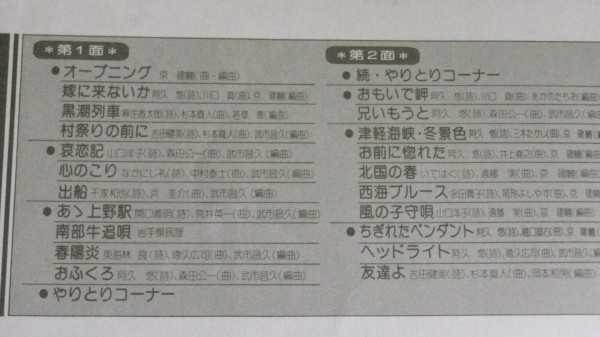 *第1面*
●オープニング 京 建輔(曲・編曲)
嫁に来ないか 阿久 悠(詩)、川口 真(曲)、京 建輔(編曲)
黒潮列車 麻生香太郎(詩)、杉本真人(曲)、若草 恵(編曲)
村祭りの前に 吉田健美(詩)、杉本真人(曲)、武市昌久(編曲)
●哀恋記 山口洋子(詩)、森田公一(曲)、武市昌久(編曲)
心のこり なかにし礼(詩)、中村泰士(曲)、武市昌久(編曲)
出船 千家和也(詩)、浜 圭介(曲)、武市昌久(編曲)
●あゝ上野駅 関口義明(詩)、荒井英一(曲)、武市昌久(編曲)
南部牛追唄 岩手県民謡
春陽炎 東海林 良(詩)、徳久広司(曲)、武市昌久(編曲)
おふくろ 阿久 悠(詩)、森田公一(曲)、武市昌久(編曲)
●やりとりコーナー
*第2面*
●続・やりとりコーナー
●おもいで岬 阿久 悠(詩)、川口 真(曲)、あかのたちお(編曲)
兄いもうと 阿久 悠(詩)、森田公一(曲)、武市昌久(編曲)
●津軽海峡・冬景色 阿久 悠(詩)、三木たかし(曲)、京 建輔(編曲)
お前に惚れた 阿久 悠(詩)、井上堯之(曲)、京 建輔(編曲)
北国の春 いではく(詩)、遠藤 実(曲)、京 建輔(編曲)
西海ブルース 永田貴子(詩)、尾形よしやす(曲)、京
風の子守唄 山口洋子(詩)、遠藤 実(曲)、京 建輔(編曲)
●ちぎれたペンダント 阿久 悠(詩)、
ヘッドライト 阿久 悠(詩)、徳久広司(曲)、武市昌久(編
友達よ 吉田健美(詩)、杉本真人(曲)、岡本和男(編曲)